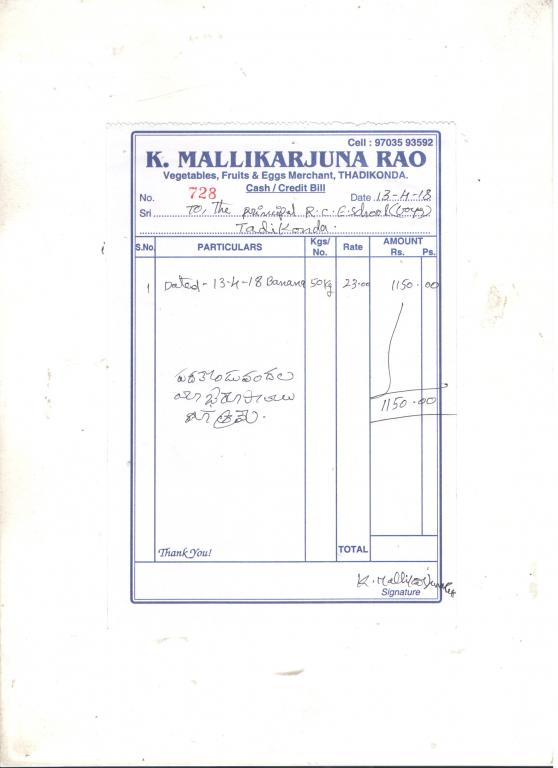 Cell : 97035 93592
K. MALLIKARJUNA RAO
Vegetables, Fruits & Eggs Merchant, THADIKONDA.
Cash / Credit Bill
No. 728 Date 13-4-18
Sri To, The principal R.C.E. School (boys)
Tadikonda.
S.No. PARTICULARS Kgs/ No. Rate AMOUNT Rs. Ps.
1 Dated - 13-4-18 Banana 50 kg 23.00 1150.00
1150.00
Thank You! TOTAL
Signature